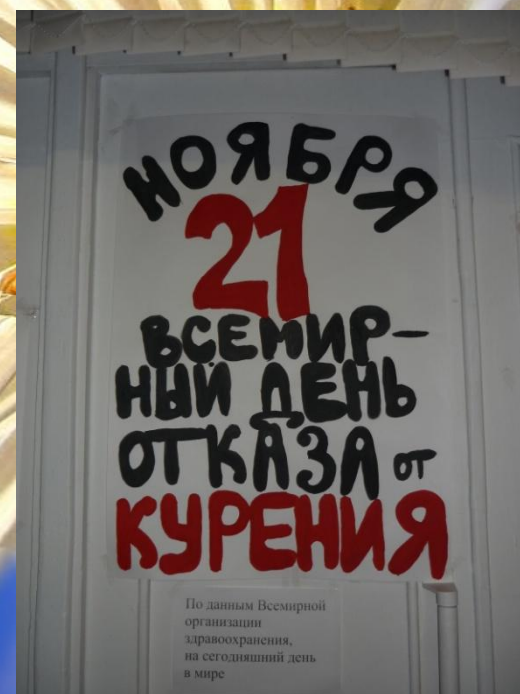 НОЯБРЯ
21
ВСЕМИР-
НЫЙ ДЕНЬ
ОТКАЗА от
КУРЕНИЯ
По данным Всемирной
организации
здравоохранения,
на сегодняшний день
в мире